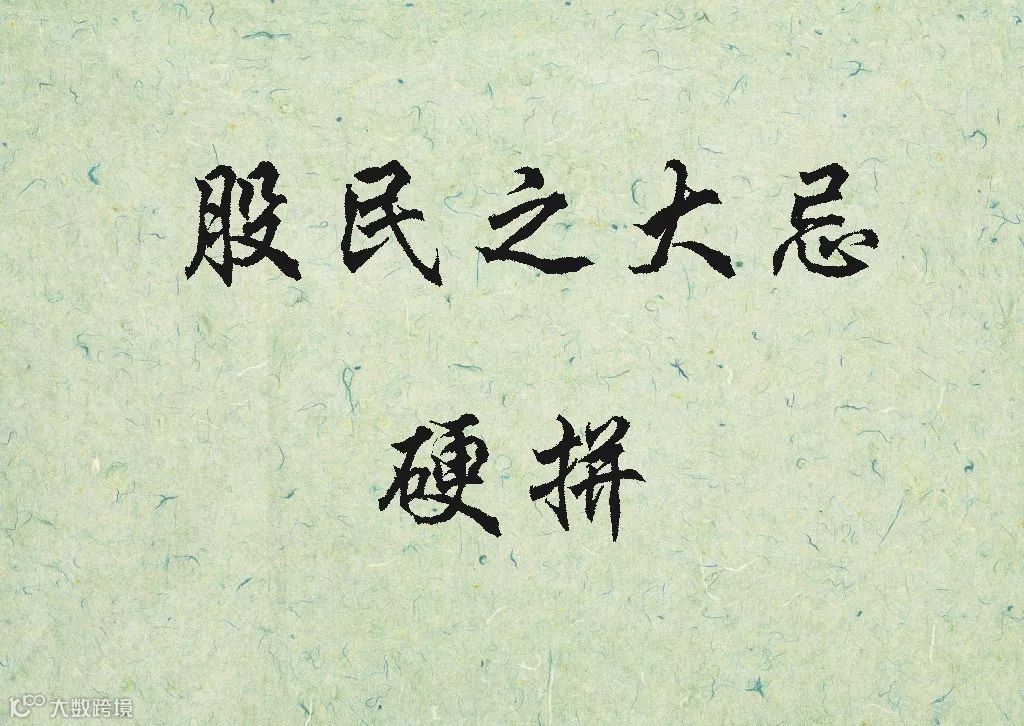 股民之大忌
硬拼
大数跨境